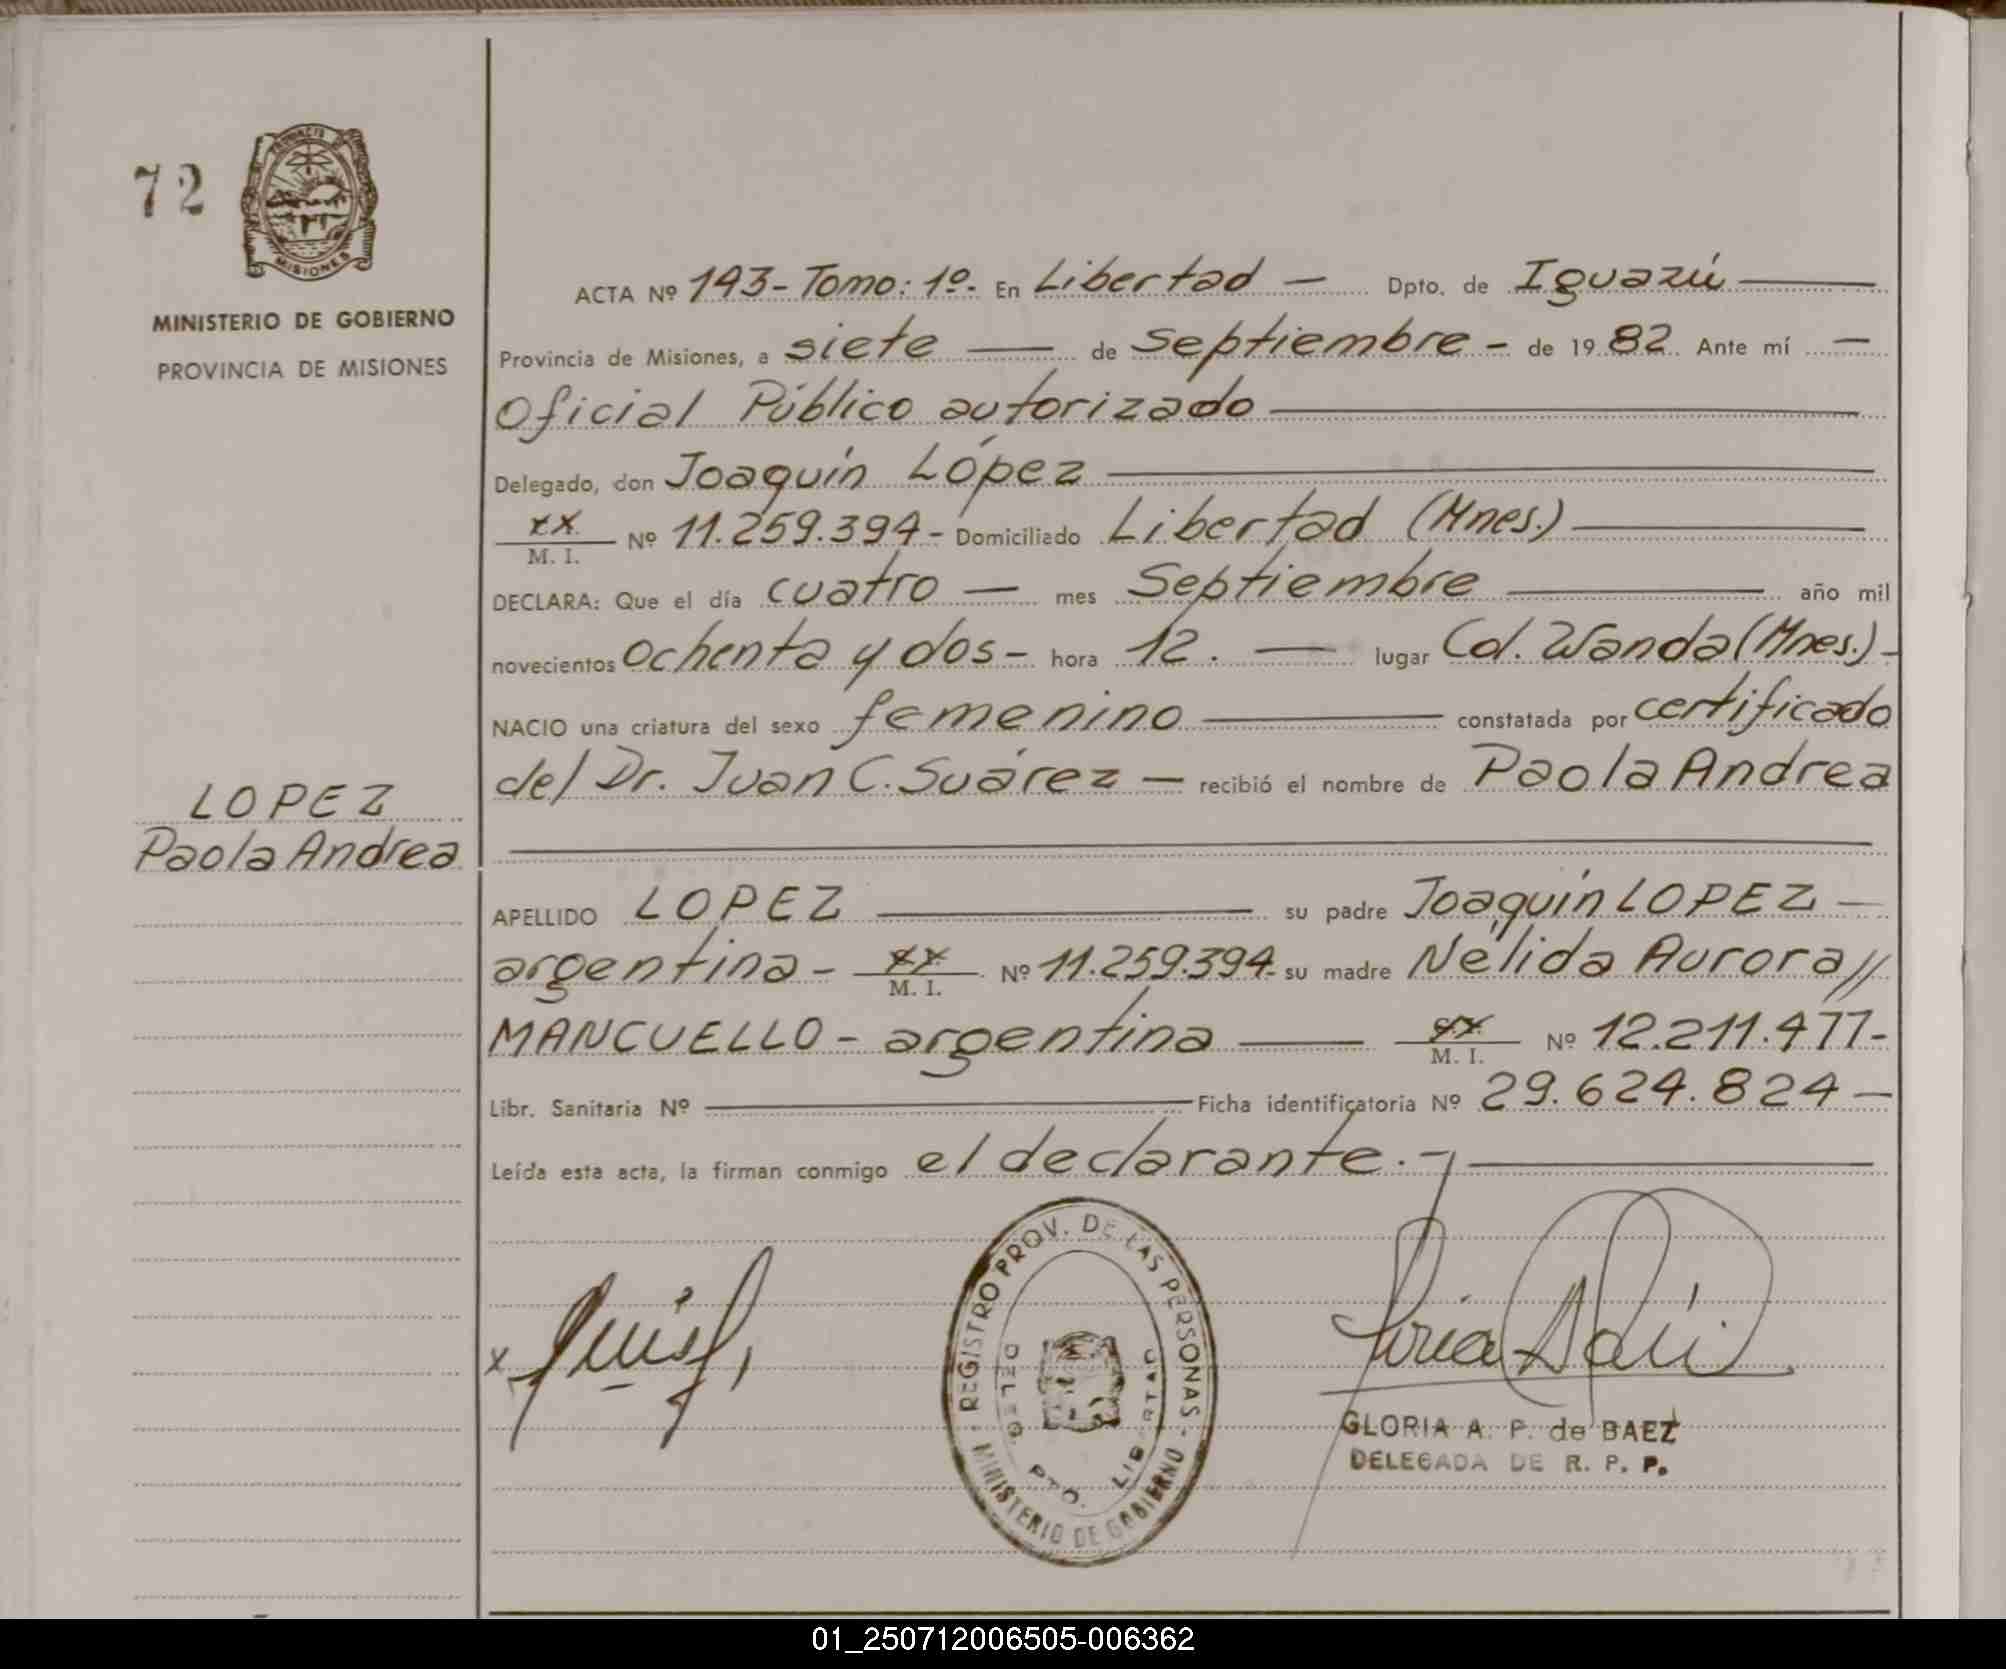 72
PROVINCIA DE
MISIONES
MINISTERIO DE GOBIERNO
PROVINCIA DE MISIONES
ACTA Nº 143- Tomo: 1º- En Libertad — Dpto. de Iguazú —
Provincia de Misiones, a siete — de septiembre - de 19 82 Ante mí —
Oficial Público autorizado —
Delegado, don Joaquín López —
xx M. I. Nº 11.259.394- Domiciliado Libertad (Mnes.) —
DECLARA: Que el día cuatro — mes Septiembre — año mil
novecientos ochenta y dos - hora 12. — lugar Col. Wanda (Mnes.) -
NACIO una criatura del sexo femenino — constatada por certificado
del Dr. Juan C. Suárez — recibió el nombre de Paola Andrea
LOPEZ
Paola Andrea
APELLIDO LOPEZ — su padre Joaquín LOPEZ —
argentina - xx M. I. Nº 11.259.394- su madre Nélida Aurora //
MANCUELLO - argentina — xx M. I. Nº 12.211.477-
Libr. Sanitaria Nº — Ficha identificatoria Nº 29.624.824 —
Leída esta acta, la firman conmigo el declarante. - —
x
REGISTRO PROV. DE LAS PERSONAS
DELEG. PTO. LIBERTAD
MINISTERIO DE GOBIERNO
GLORIA A. P. de BAEZ
DELEGADA DE R. P. P.
01_250712006505-006362